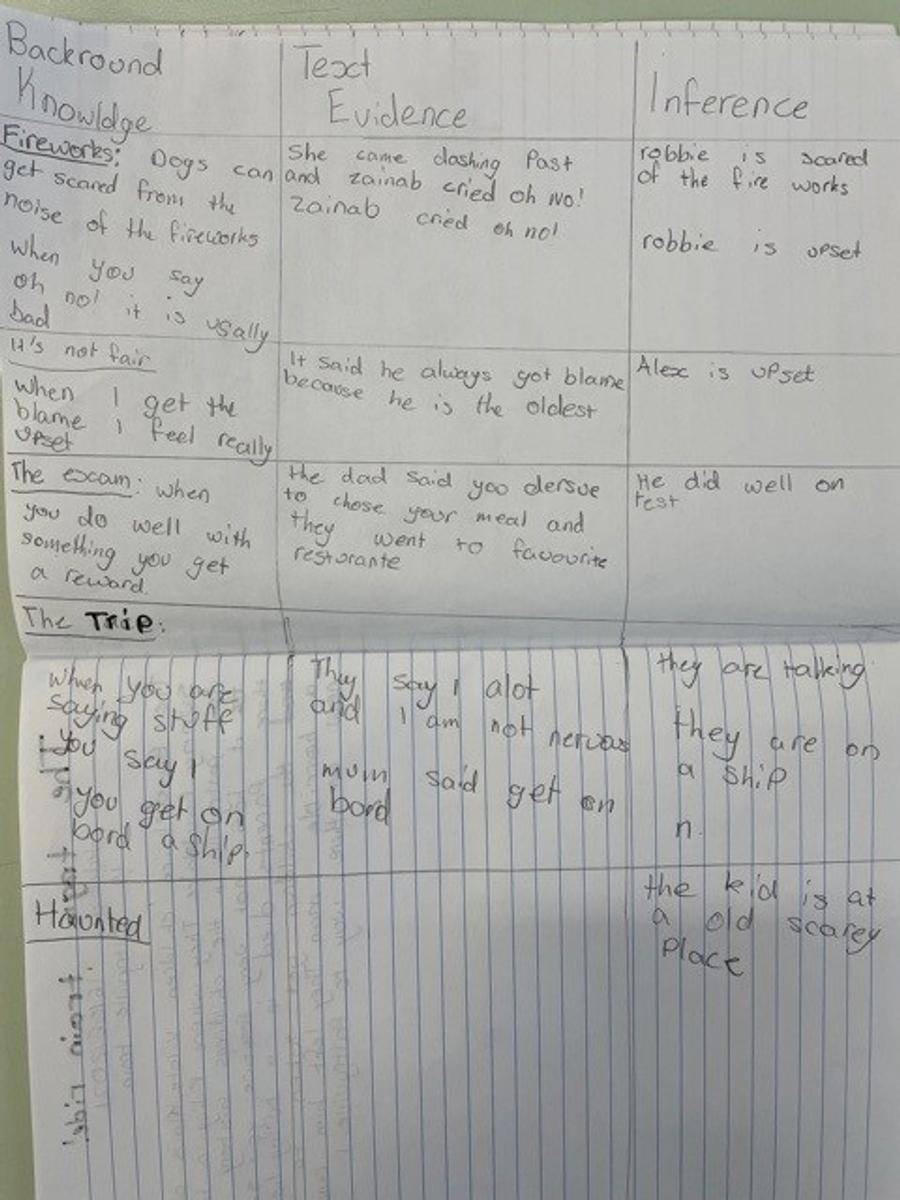 Backround
Knowldge
Text
Evidence
Inference
Fireworks: Dogs can
get scared from the
noise of the fireworks
when you say
oh no! it is usally
bad
She came dashing Past
and zainab cried oh No!
zainab cried oh no!
robbie is scared
of the fire works
robbie is upset
It's not fair
when I get the
blame I feel really
upset
It said he always got blame
because he is the oldest
Alex is upset
The excam: when
you do well with
something you get
a reward.
the dad said you dersue
to chose your meal and
they went to favourite
restorante
He did well on
test
The Trip:
when you are
saying stuff
you say I
you get on
bord a ship.
They say I alot
and I am not nervas
mum said get on
bord
they are talking
they are on
a ship
n.
Haunted
the kid is at
a old scarey
Place